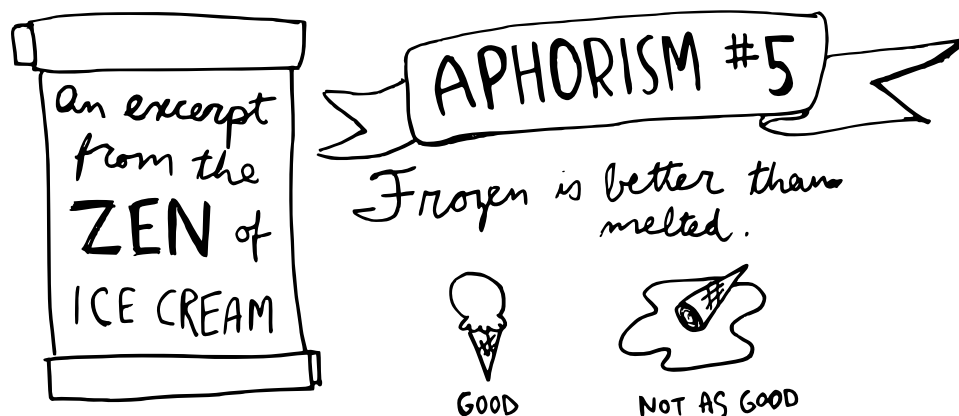 An excerpt
from the
ZEN of
ICE CREAM
APHORISM #5
Frozen is better than
melted.
GOOD
NOT AS GOOD